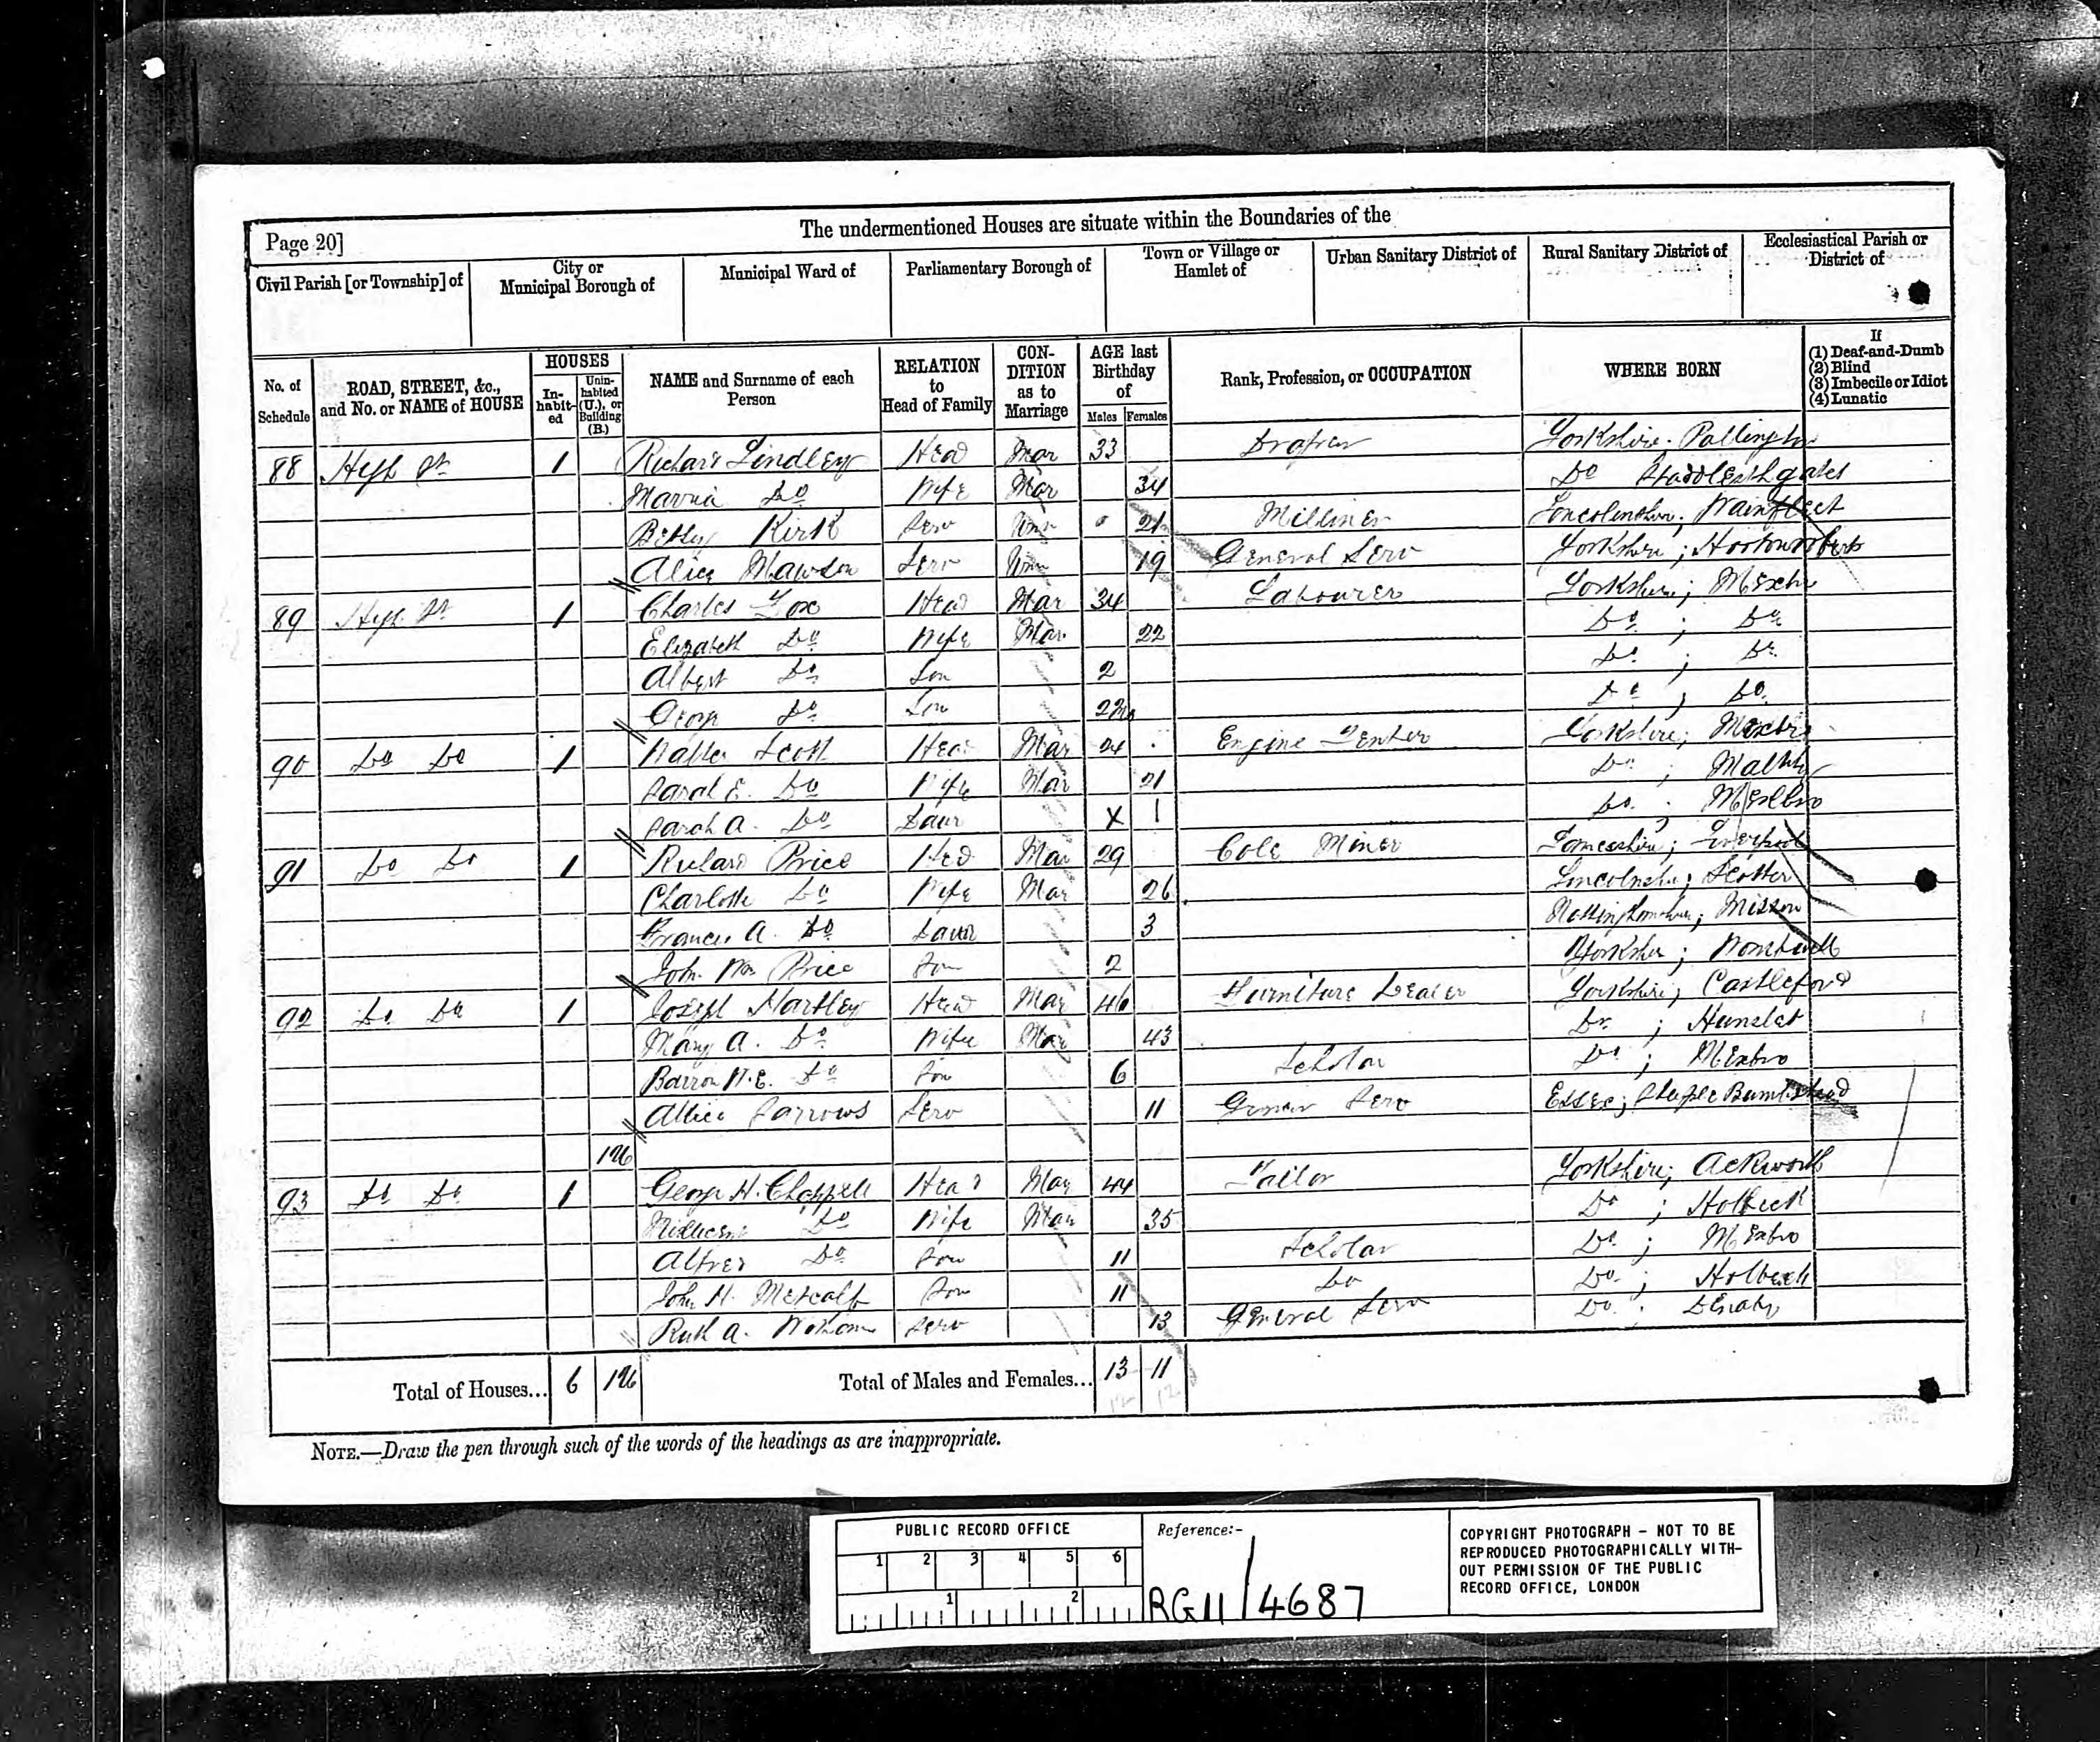 The undermentioned Houses are situate within the Boundaries of the
Page 20]
Civil Parish [or Township] of
City or Municipal Borough of
Municipal Ward of
Parliamentary Borough of
Town or Village or Hamlet of
Urban Sanitary District of
Rural Sanitary District of
Ecclesiastical Parish or District of
No. of Schedule
ROAD, STREET, &c., and No. or NAME of HOUSE
HOUSES
Inhabited
Uninhabited (U.), or Building (B.)
NAME and Surname of each Person
RELATION to Head of Family
CONDITION as to Marriage
AGE last Birthday of
Males Females
Rank, Profession, or OCCUPATION
WHERE BORN
If
(1) Deaf-and-Dumb
(2) Blind
(3) Imbecile or Idiot
(4) Lunatic
88 High St 1 Richard Lindley Head Mar 33 Draper Yorkshire; Pollington
Do Wife Mar 34 Do
Betsy Kirk Serv Unm 21 Milliner Lincolnshire; Wainfleet
Alice Mawson Serv Unm 19 General Serv Yorkshire; Hooton Roberts
89 High St 1 Charles Fox Head Mar 34 Labourer Yorkshire; Mexbro
Elizabeth Do Wife Mar 22 Do ; Do
Albert Do Son 2 Do ; Do
George Do Son 2 Mo Do ; Do
90 Do Do 1 Walter Scott Head Mar 24 Engine Tenter Yorkshire; Mexbro
Sarah E. Do Wife Mar 21 Do ; Maltby
Sarah A. Do Daur X 1 Do ; Mexbro
91 Do Do 1 Richard Price Hed Mar 29 Cole Miner Lancashire; Liverpool
Charlotte Do Wife Mar 26 Lincolnshire; Scotter
Frances A. Do Daur 3 Nottinghamshire; Misson
John Wm Price Son 2 Yorkshire; Wombwell
92 Do Do 1 Joseph Hartley Head Mar 46 Furniture Dealer Yorkshire; Castleford
Mary A. Do Wife Mar 43 Do ; Hunslet
Barron H.E. Do Son 6 Scholar Do ; Mexbro
Allice Sarrows Serv 11 Serv Essex; Steeple Bumpstead
1U
93 Do Do 1 George H. Chappell Head Mar 44 Tailor Yorkshire; Ackworth
Do Wife Mar 35 Do ; Holbeck
Alfred Do Son 11 Scholar Do ; Mexbro
John H. Metcalf Son 11 Do Do ; Holbeck
Ruth A. Serv 13 General Serv Do ; Denaby
Total of Houses... 6 1U Total of Males and Females... 13 11
12 12
NOTE.—Draw the pen through such of the words of the headings as are inappropriate.
PUBLIC RECORD OFFICE
1 2 3 4 5 6
1 2
Reference:-
RG 11/4687
COPYRIGHT PHOTOGRAPH - NOT TO BE
REPRODUCED PHOTOGRAPHICALLY WITH-
OUT PERMISSION OF THE PUBLIC
RECORD OFFICE, LONDON